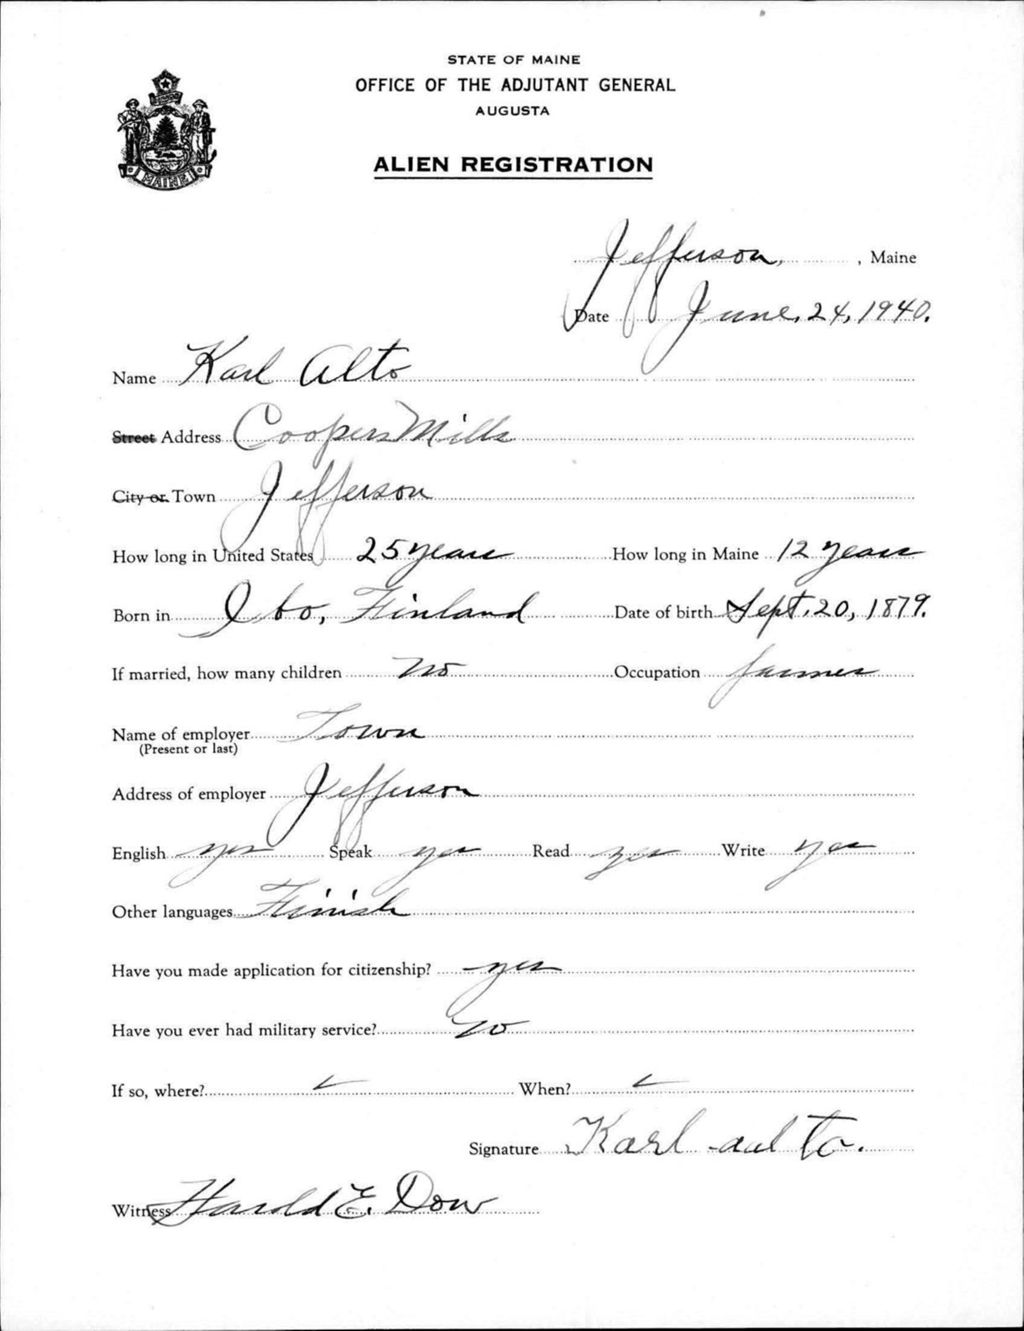 STATE OF MAINE
OFFICE OF THE ADJUTANT GENERAL
AUGUSTA
ALIEN REGISTRATION
MAINE
Jefferson, , Maine
Date June, 24, 1940.
Name Karl Alto
Street Address Coopers Mills
City or Town Jefferson
How long in United States 25 years How long in Maine 12 years
Born in Ibo, Finland Date of birth Sept. 20, 1879.
If married, how many children no Occupation farmer
Name of employer Town
(Present or last)
Address of employer Jefferson
English yes Speak yes Read yes Write yes
Other languages Finish
Have you made application for citizenship? yes
Have you ever had military service? no
If so, where? When?
Signature Karl aalto.
Witness Harold E. Dow